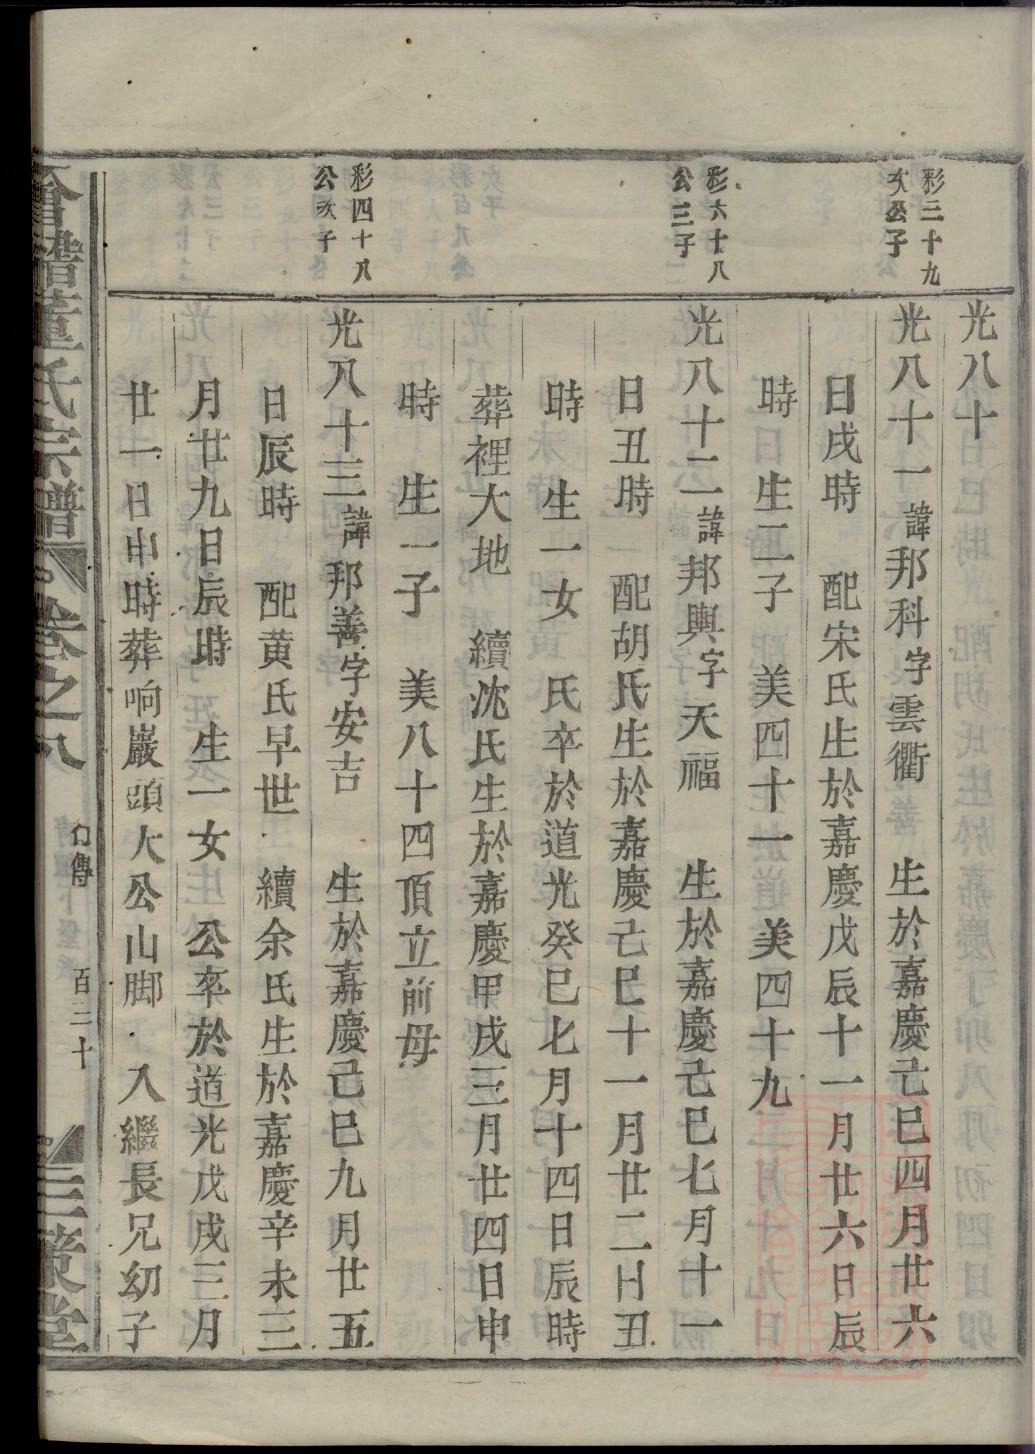 光八十
彩二十九
次公子
光八十一諱邦科字雲衢 生於嘉慶己巳四月廿六
日戌時 配宋氏生於嘉慶戊辰十一月廿六日辰
時 生二子 美四十一 美四十九
彩六十八
公三子
光八十二諱邦輿字天福 生於嘉慶己巳七月十一
日丑時 配胡氏生於嘉慶己巳十一月廿二日丑
時 生一女 氏卒於道光癸巳七月十四日辰時
葬裡大地 續沈氏生於嘉慶甲戌三月廿四日申
時 生一子 美八十四頂立前母
彩四十八
公次子
光八十三諱邦善字安吉 生於嘉慶己巳九月廿五
日辰時 配黄氏早世 續余氏生於嘉慶辛未三
月廿九日辰時 生一女 公卒於道光戊戌三月
廿一日申時葬响巖頭大公山脚 入繼長兄幼子
會稽董氏宗譜 卷之八 行傳 百三十 三策堂